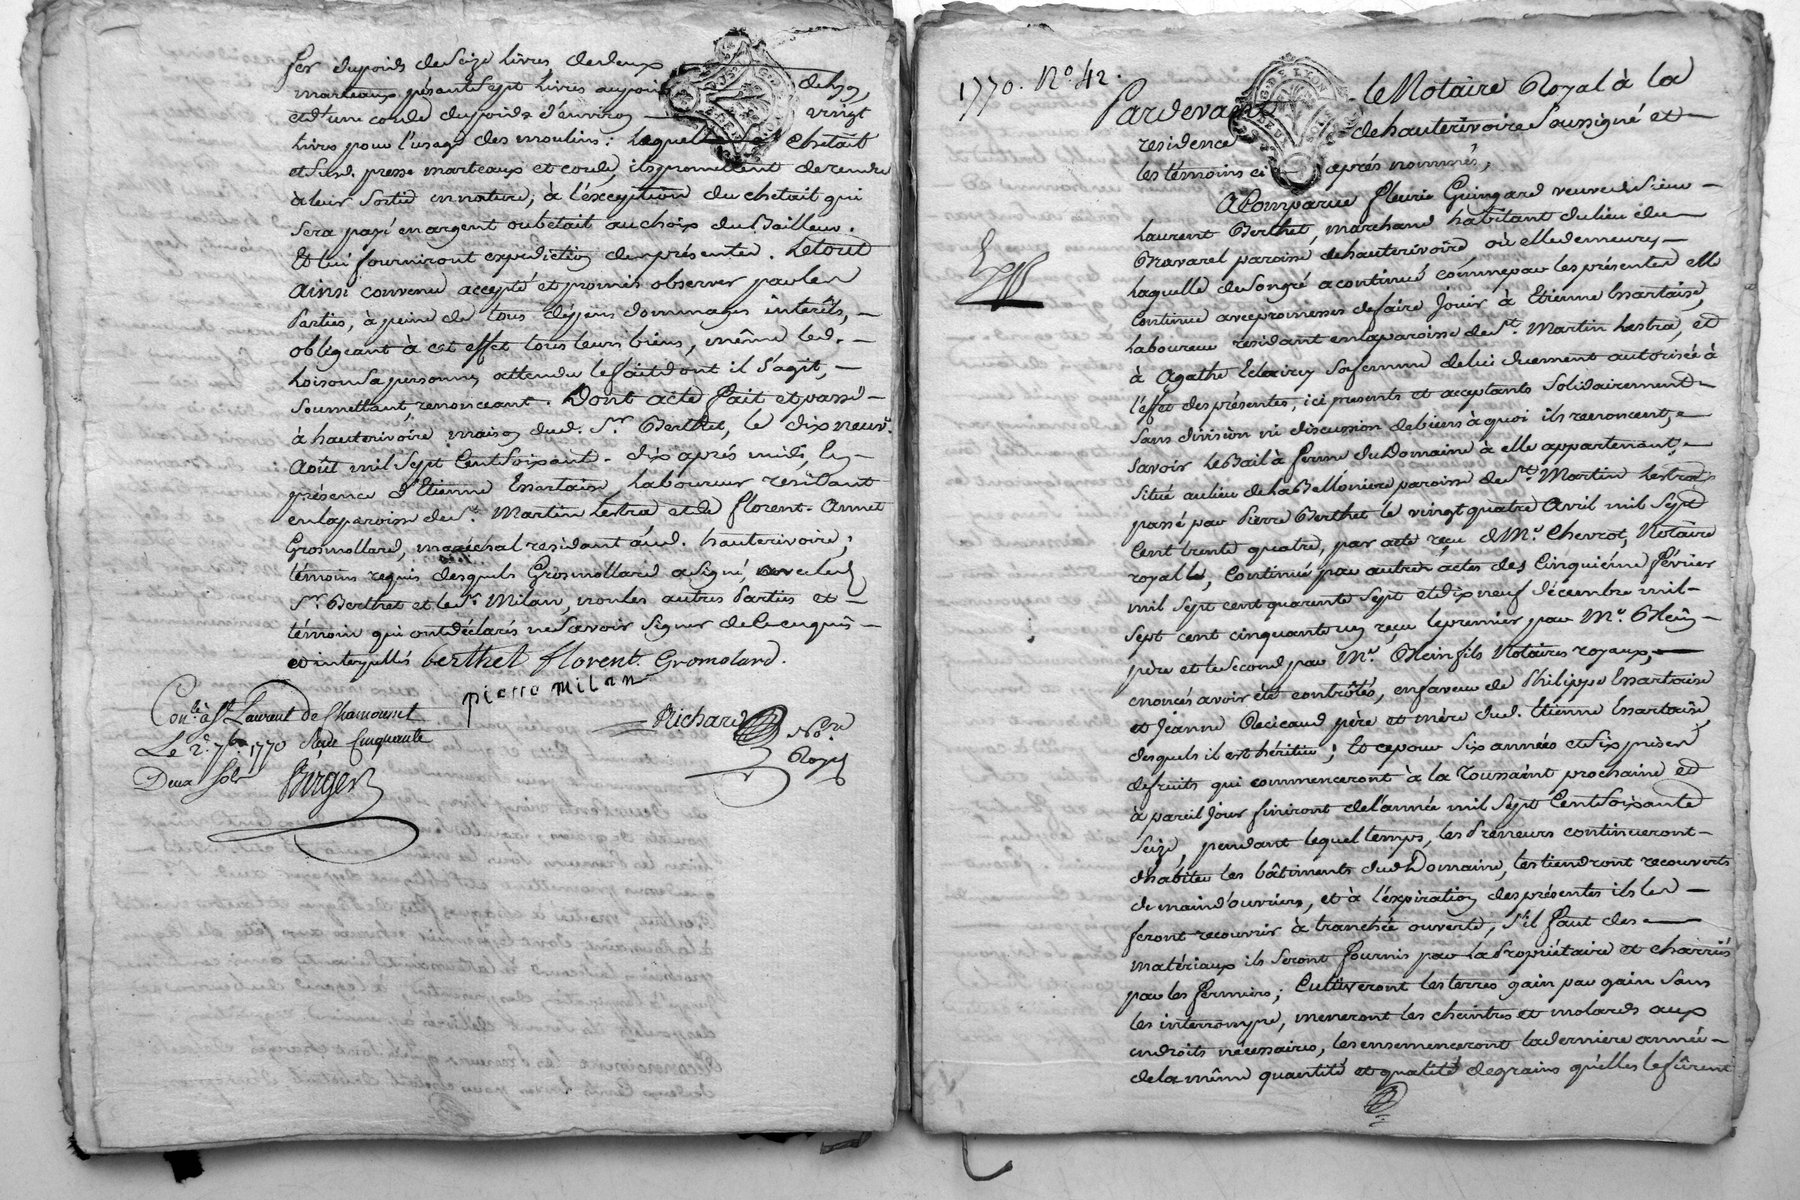 fer dupoids de Seize Livres de deux
marteaux pésants Sept Livres aupoids de lyon,
et d'une corde du poids d'environ vingt
Livres pour l'usage des moulins. Lequel Chetail
et Sud. presse marteaux et corde, ils promettent de rendre
à leur Sortie en nature; à l'éxception du chetail qui
Sera payé en argent ou betail au choix du Bailleur.
Et lui fourniront expedition des présentes. Le tout
Ainsi convenu accepté et promis observer par les
Parties, à peine de tous dépens dommages intérêts, —
obligeant à cet effet tous leurs biens, même led. —
Loison Sa personne, attendu le fait dont il S'agit, —
Soumettant, renonceant. Dont acte fait et passé —
à hauterivoire maison dud. Sr. Berthet, le dix neuf.
Août mil Sept Cent Soixante-dix après midi, En —
présence d'Etienne Essartaise, Laboureur residant
en la paroisse de St. Martin Lestra et de florent-Annet
Grosmollard, maréchal residant aud. hauterivoire,
témoins requis desquels Grosmollard a Signé, avec led.
Sr. Berthet et led. Milan, non les autres Parties et —
témoin qui ont déclarés ne Savoir Signer de ce enquis —
et interpellés berthet florent. Gromolard.
pierre milan
Richard Nore.
Royal
Conlé. à St. Laurent de Chamousset
Le 2e. 7bre. 1770 Reçu Cinquante
Deux Sols Birger
1770. No. 42.
Pardevant le Notaire Royal à la
residence de hauterivoire Soussigné et —
les témoins ci après nommés,
A Comparue Fleurie Guingard veuve du Sieur —
Laurent Berthet, marchand habitant du lieu du —
Navarel paroisse de hauterivoire où elle demeure, —
Laquelle de Son gré a continué comme par les présentes elle
Continue avec promesses de faire Jouir à Etienne Essartaise,
Laboureur résidant en la paroisse de St. Martin Lestra, et
à Agathe Eclaircy Sa femme de lui duement autorisée à
l'effet des présentes, ici présents et acceptants Solidairement —
Sans division ni discussion de biens à quoi ils renoncent, —
Savoir Le Bail à ferme du Domaine à elle appartenant, —
Situé au lieu de la Bellonniere paroisse de St. Martin Lestra,
passé par Pierre Berthet le vingt quatre Avril mil Sept
Cent trente quatre, par acte reçu de Me. Chevrot, Notaire
royal, Continué par autres actes des Cinquiéme février
mil Sept cent quarente Sept et dix neuf décembre mil —
Sept cent cinquante un reçu le premier par Me. Blein —
père et le Second par Me. Blein fils Notaires royaux, —
enoncés avoir été controlés, en faveur de Philippe Essartaise
et Jeanne Recicaud père et mère dud. Etienne Essartaise,
desquels il est héritier; Et ce pour Six années et Six prises
de fruits qui commenceront à la Toussaint prochaine et
à pareil Jour finiront de l'année mil Sept Cent Soixante
Seize, pendant lequel temps, les Preneurs continueront —
d'habiter les bâtiments dud. Domaine, les tiendront recouverts
de main d'ouvriers, et à l'éxpiration des présentes ils les —
feront recouvrir à tranchée ouverte, S'il faut des —
matériaux ils Seront fournis par la Propriétaire et charriés
par les fermiers; Cultiveront les terres gain par gain Sans
les interrompre, meneront les cheintres et molards aux
endroits nécessaires, les ensemenceront la derniere année —
de la même quantité et qualité de grains qu'elles le fûrent